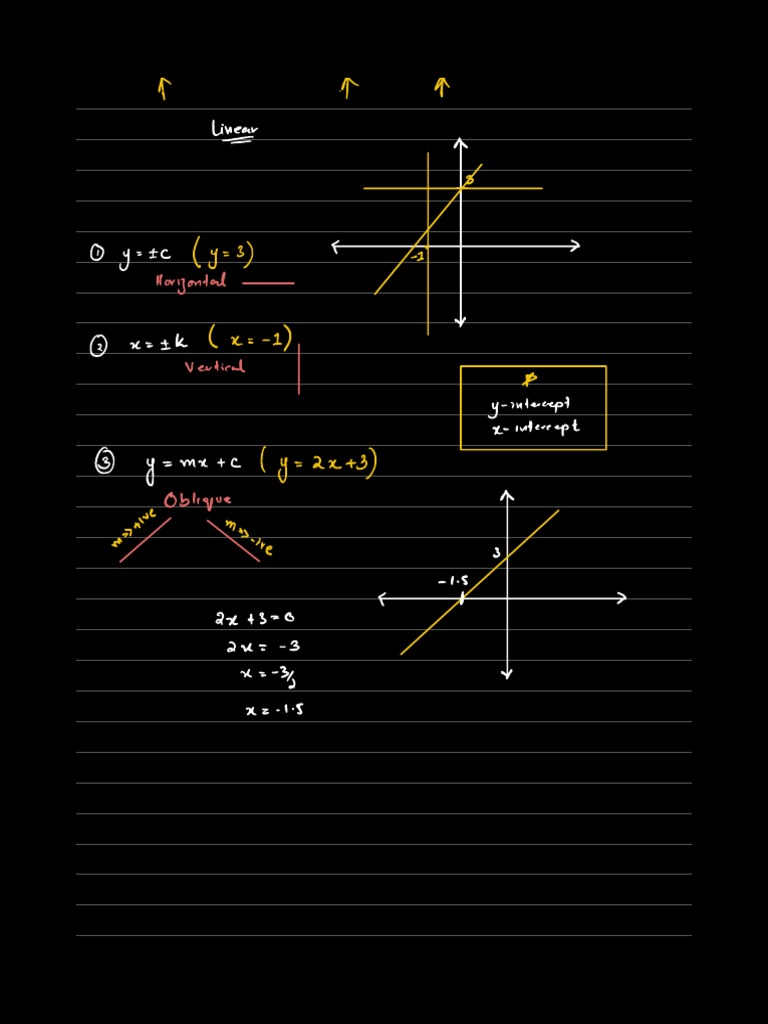 Linear
3
-1
① y = ±c (y = 3)
Horizontal
② x = ±k (x = -1)
Vertical
y-intercept
x-intercept
③ y = mx + c (y = 2x+3)
Oblique
m => +ive
m => -ive
3
-1.5
2x + 3 = 0
2x = -3
x = -3/2
x = -1.5